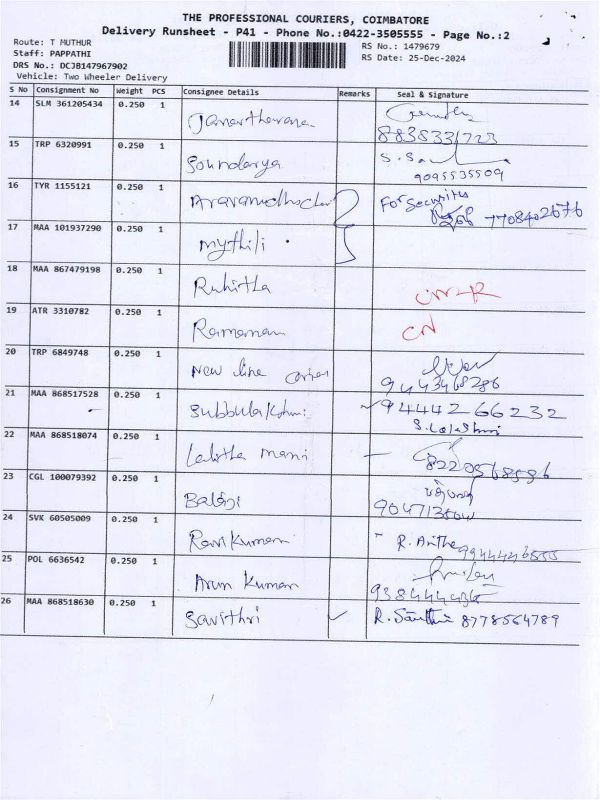 THE PROFESSIONAL COURIERS, COIMBATORE
Delivery Runsheet - P41 - Phone No.:0422-3505555 - Page No.:2
Route: T MUTHUR
RS No.: 1479679
Staff: PAPPATHI
RS Date: 25-Dec-2024
DRS No.: DCJB147967902
Vehicle: Two Wheeler Delivery
S No Consignment No Weight PCS Consignee Details Remarks Seal & Signature
14 SLM 361205434 0.250 1 Janarthanana
8838331723
15 TRP 6320991 0.250 1 Soundarya S.
9095535509
16 TYR 1155121 0.250 1 For Securities
7708402676
17 MAA 101937290 0.250 1 Mythili
18 MAA 867479198 0.250 1 Ruhitha
19 ATR 3310782 0.250 1 Ramanan CN
20 TRP 6849748 0.250 1 New line
9443468286
21 MAA 868517528 0.250 1 Subbulakshmi 9444266232
22 MAA 868518074 0.250 1 Lalitha mani
23 CGL 100079392 0.250 1 Balaji
24 SVK 60505009 0.250 1 Ravi Kumar R. Anitha
25 POL 6636542 0.250 1 Arun Kumar
26 MAA 868518630 0.250 1 Savithri R. Santhi 8778564789